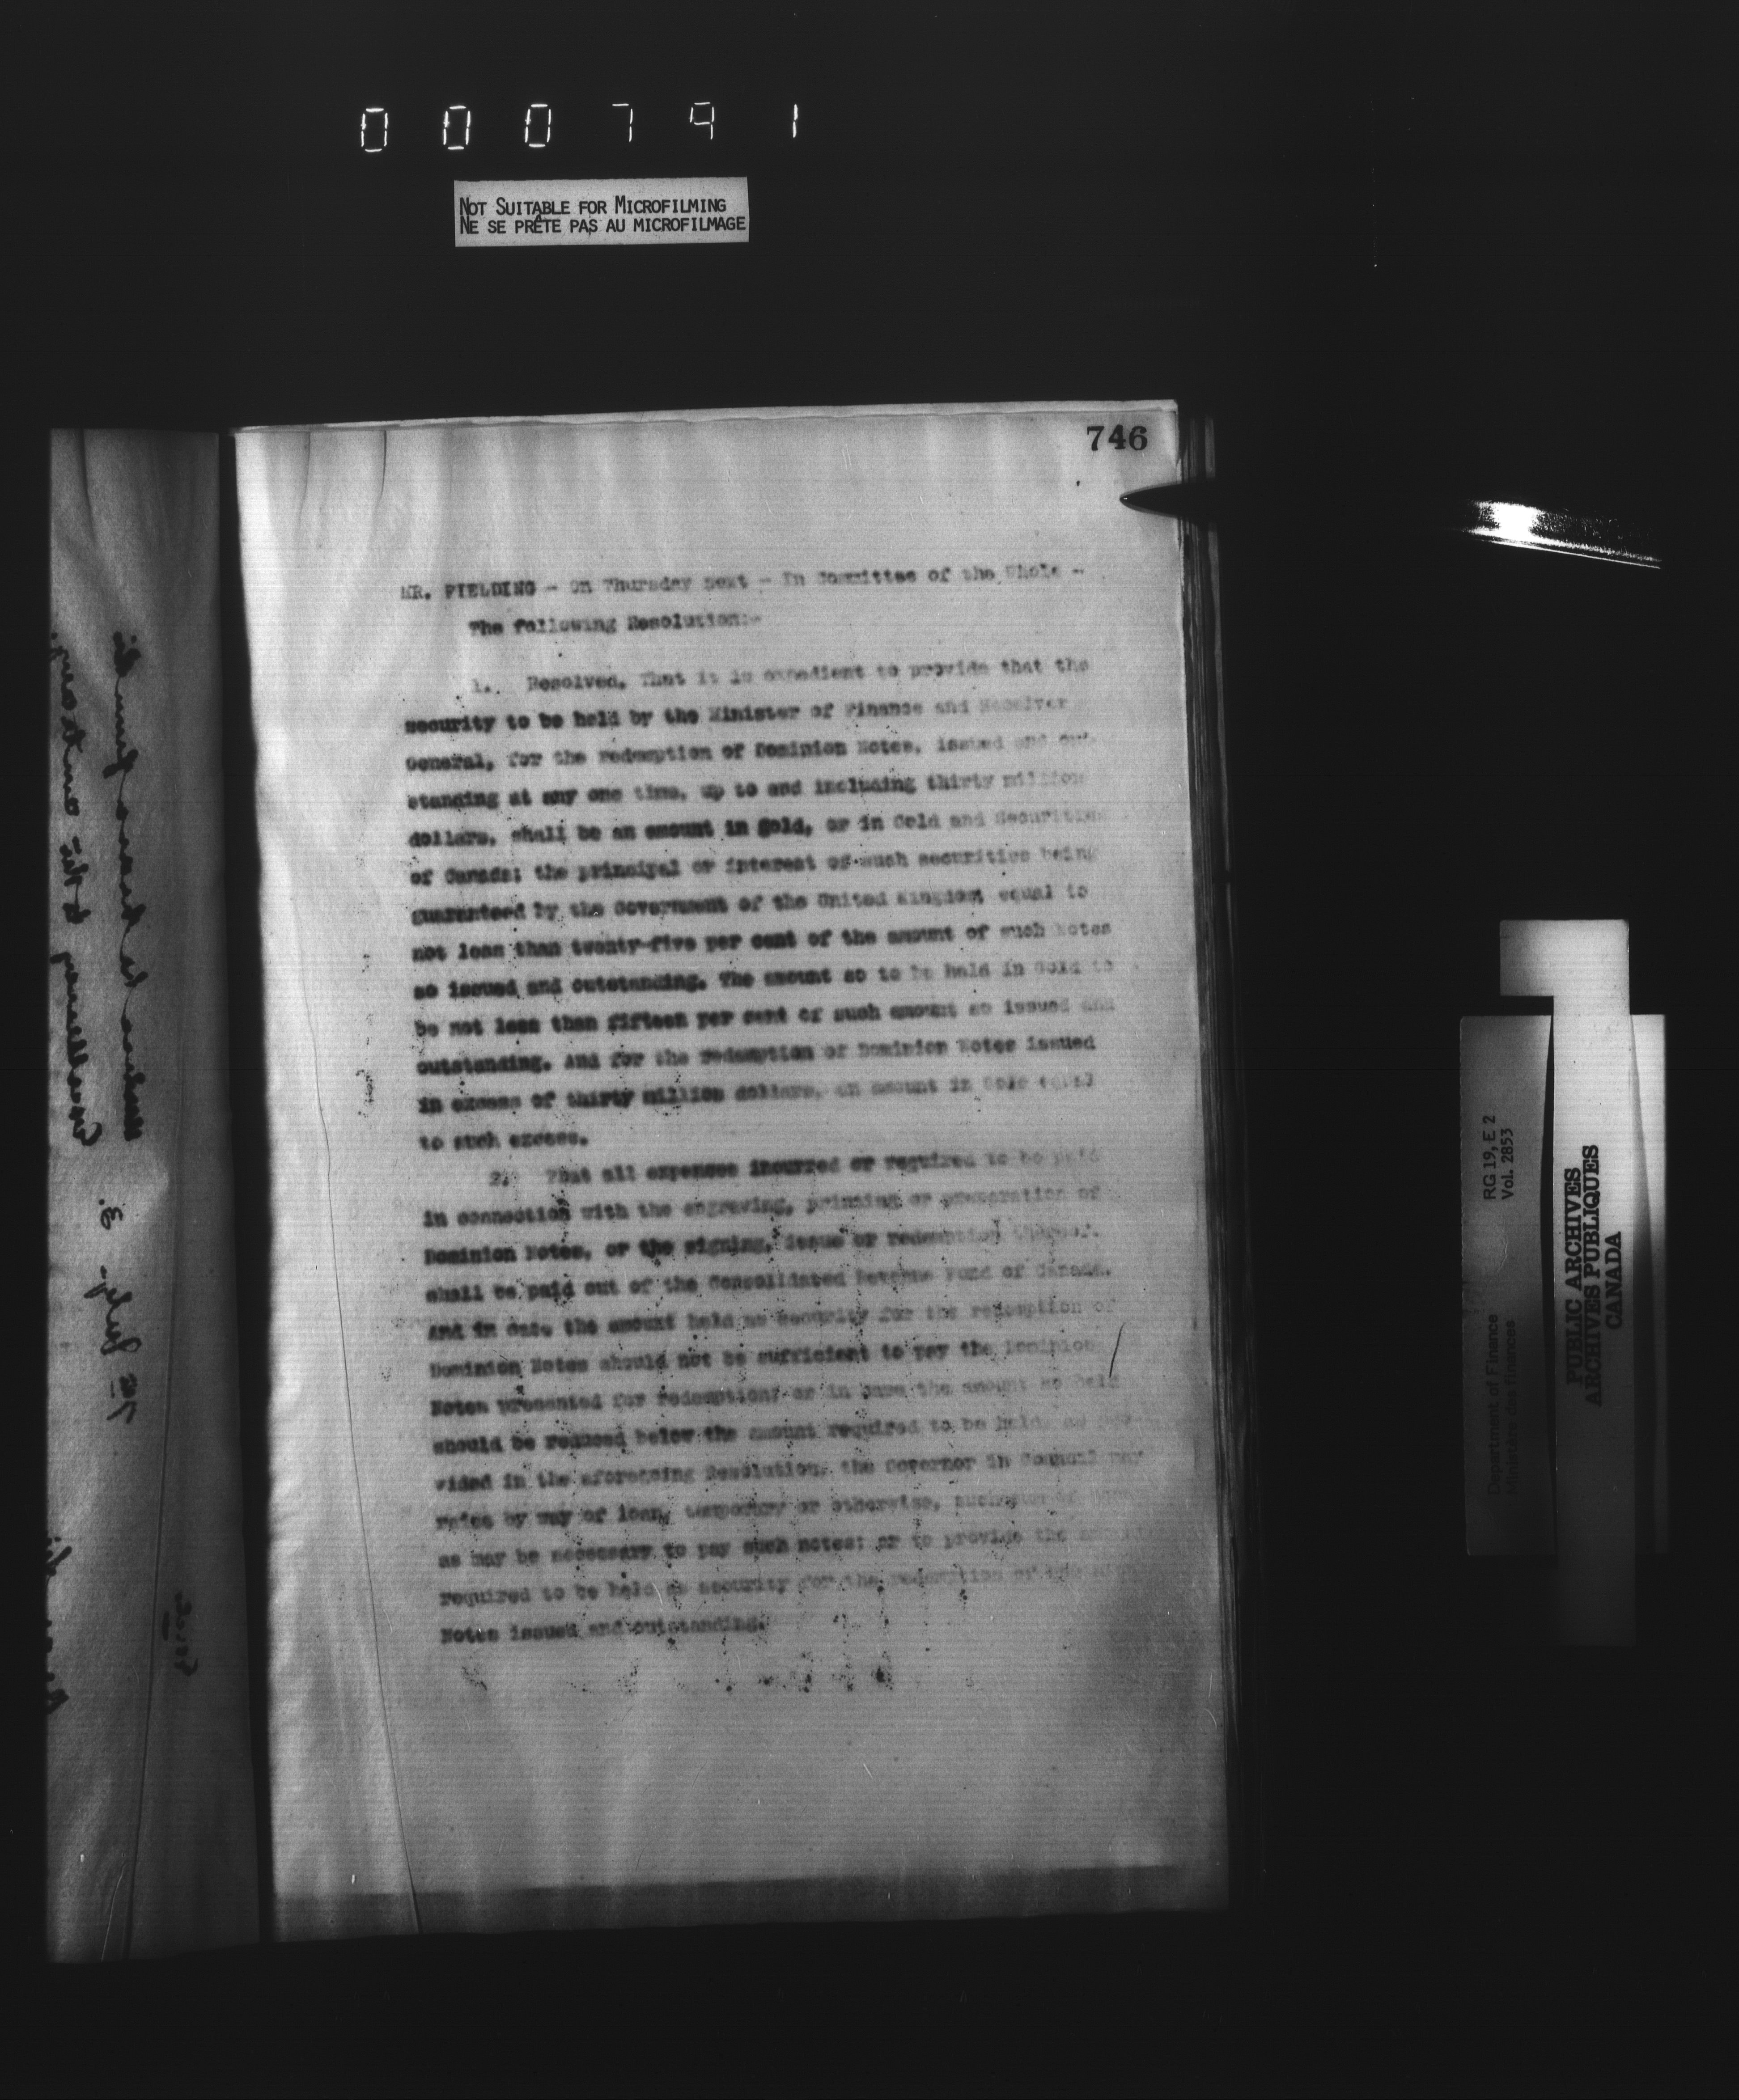 000791
NOT SUITABLE FOR MICROFILMING
NE SE PRÊTE PAS AU MICROFILMAGE
746
MR. FIELDING - On Thursday next - In Committee of the Whole -
The following Resolution:-
1. Resolved, That it is expedient to provide that the
security to be held by the Minister of Finance and Receiver
General, for the redemption of Dominion Notes, issued and out-
standing at any one time, up to and including thirty million
dollars, shall be an amount in gold, or in Gold and Securities
of Canada; the principal or interest of such securities being
guaranteed by the Government of the United Kingdom; equal to
not less than twenty-five per cent of the amount of such Notes
so issued and outstanding. The amount so to be held in Gold to
be not less than fifteen per cent of such amount so issued and
outstanding. And for the redemption of Dominion Notes issued
in excess of thirty million dollars, an amount in Gold equal
to such excess.
2. That all expenses incurred or required to be paid
in connection with the engraving, printing or preparation of
Dominion Notes, or the signing, issue or redemption thereof,
shall be paid out of the Consolidated Revenue Fund of Canada.
And in case the amount held as security for the redemption of
Dominion Notes should not be sufficient to pay the Dominion
Notes presented for redemption; or in case the amount so held
should be reduced below the amount required to be held, as pro-
vided in the aforegoing Resolution, the Governor in Council may
raise by way of loan, temporary or otherwise, such
as may be necessary to pay such notes; or to provide the
required to be held as security for the redemption of Dominion
Notes issued and outstanding.
RG 19, E 2
Vol. 2853
Department of Finance
Ministère des finances
PUBLIC ARCHIVES
ARCHIVES PUBLIQUES
CANADA